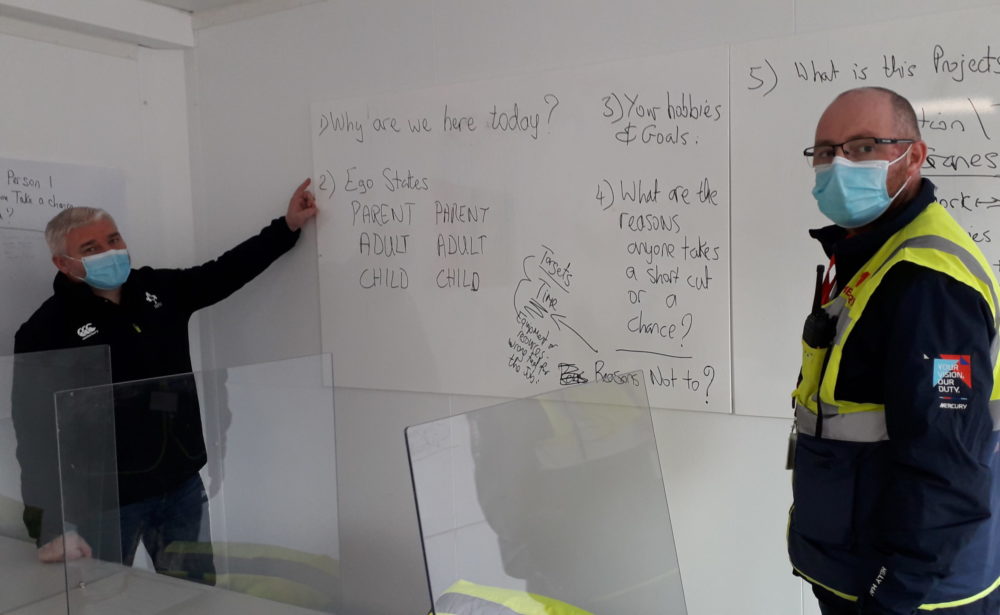 Person 1
Take a chance
?
1) Why are we here today?
2) Ego States
PARENT PARENT
ADULT ADULT
CHILD CHILD
3) Your hobbies
& Goals.
4) What are the
reasons
anyone takes
a short cut
or a
chance?
Reasons Not to?
Targets
Time
Equipment or
resources.
wrong
for
the Job.
5) What is this Projects
CCC
YOUR
VISION.
OUR
DUTY.
MERCURY